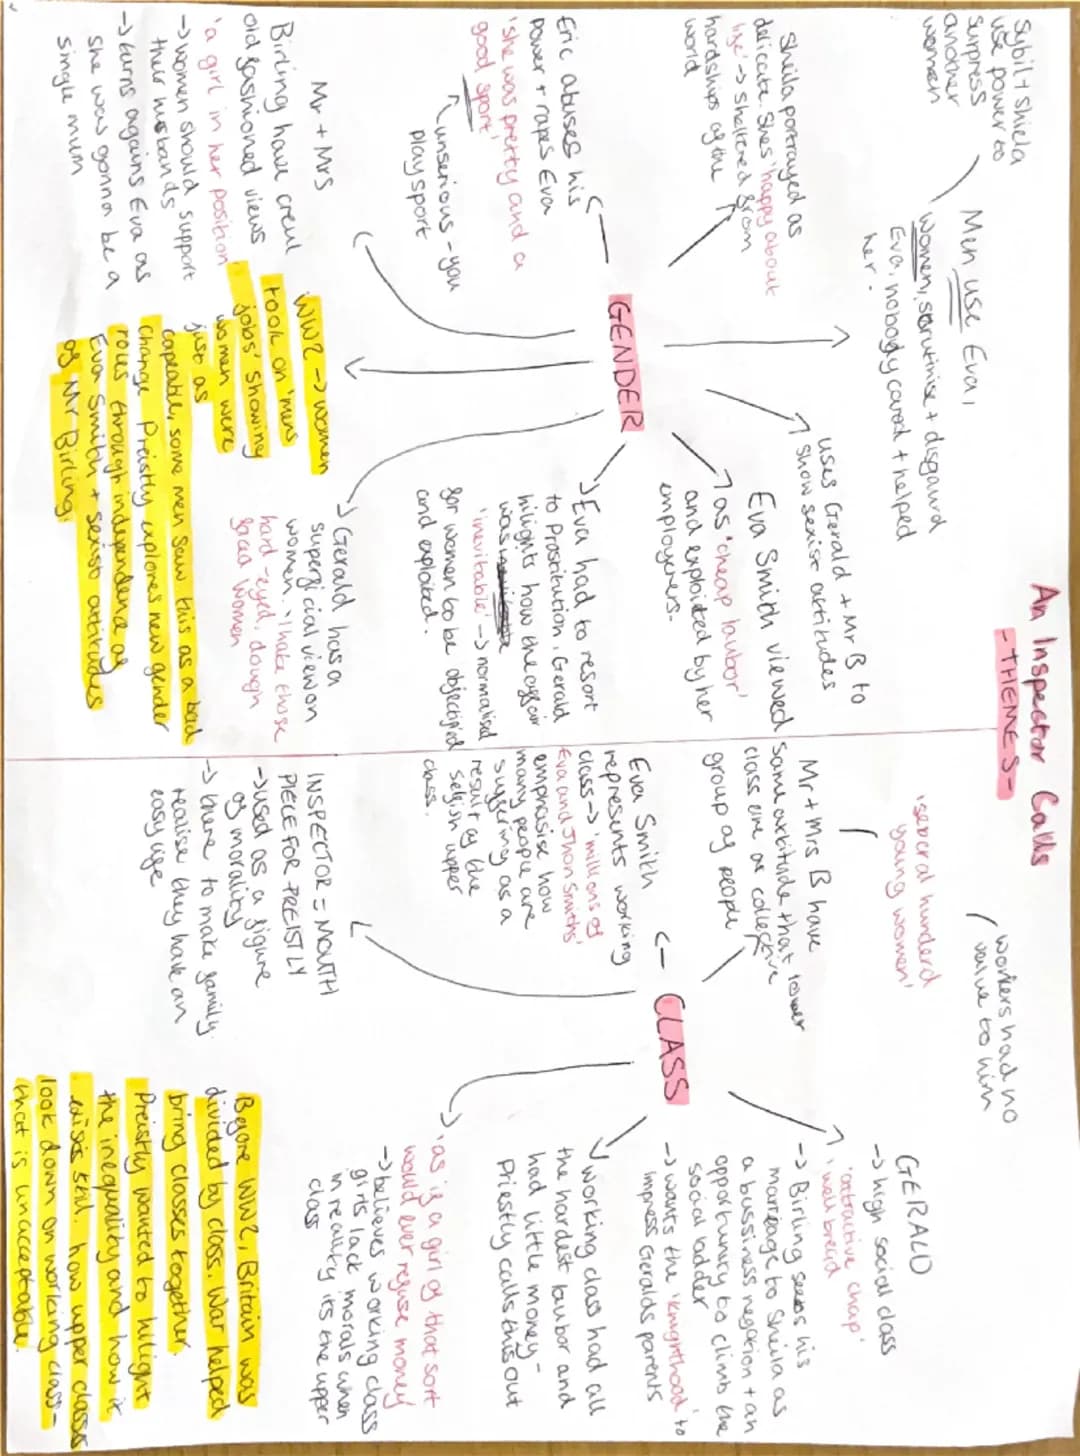 An Inspector Calls
-THEMES-
Sybil + Shiela
use power to
surpress
another
women
Men use Eva,
women, scrutinise + disgaurd
Eva, nobody cared + helped
her.
Sheila portrayed as
delicate. Shes 'happy about
life' -> Sheltered from
hardships of the
world
uses Gerald + Mr B to
show sexist attitudes
Eva Smith viewed
as 'cheap laubor'
and exploited by her
employers.
GENDER
Eric abuses his
power + rapes Eva
'she was pretty and a
good sport'
unserious - you
play sport
Eva had to resort
to Prostitution, Gerald
hilights how the affair
was
'inevitable' -> normalised
for women to be objectified
and exploited.
Mr + Mrs
Birling have creul
old fashioned views
'a girl in her position'
-> women should support
their husbands
-> turns agains Eva as
she was gonna be a
single mum
WW2 -> women
took on 'mens
jobs' showing
women were
just as
capeable, some men saw this as a bad
change. Preistly explores new gender
roles through independence of
Eva Smith + sexist attitudes
of Mr Birling.
Gerald has a
superficial view on
women. 'I hate those
hard-eyed, dough
faced women
'several hunderd
young women'
workers had no
value to him
Mr + Mrs B have
same attitude that lower
class are a collective
group of people
GERALD
-> high social class
'attractive chap'
'well bread'
-> Birling sees his
mareage to Sheila as
a bussiness negation + an
opportunity to climb the
social ladder
-> wants the 'knighthood' to
impress Geralds parents
CLASS
Eva Smith
represents working
class -> 'millions of
Eva and Jhon Smiths'
emphasise how
many people are
suffering as a
result of the
selfish upper
class.
working class had all
the hardest laubor and
had little money -
Priestly calls this out
INSPECTOR = MOUTH
PIECE FOR PREISTLY
-> used as a figure
of morality
-> there to make family
realise they have an
easy life
'as if a girl of that sort
would ever refuse money
-> believes working class
girls lack morals when
in reality its the upper
class
Before WW2, Britain was
divided by class. War helped
bring classes together.
Preistly wanted to hilight
the inequality and how it
exists still. how upper class
look down on working class -
that is unacceptable.